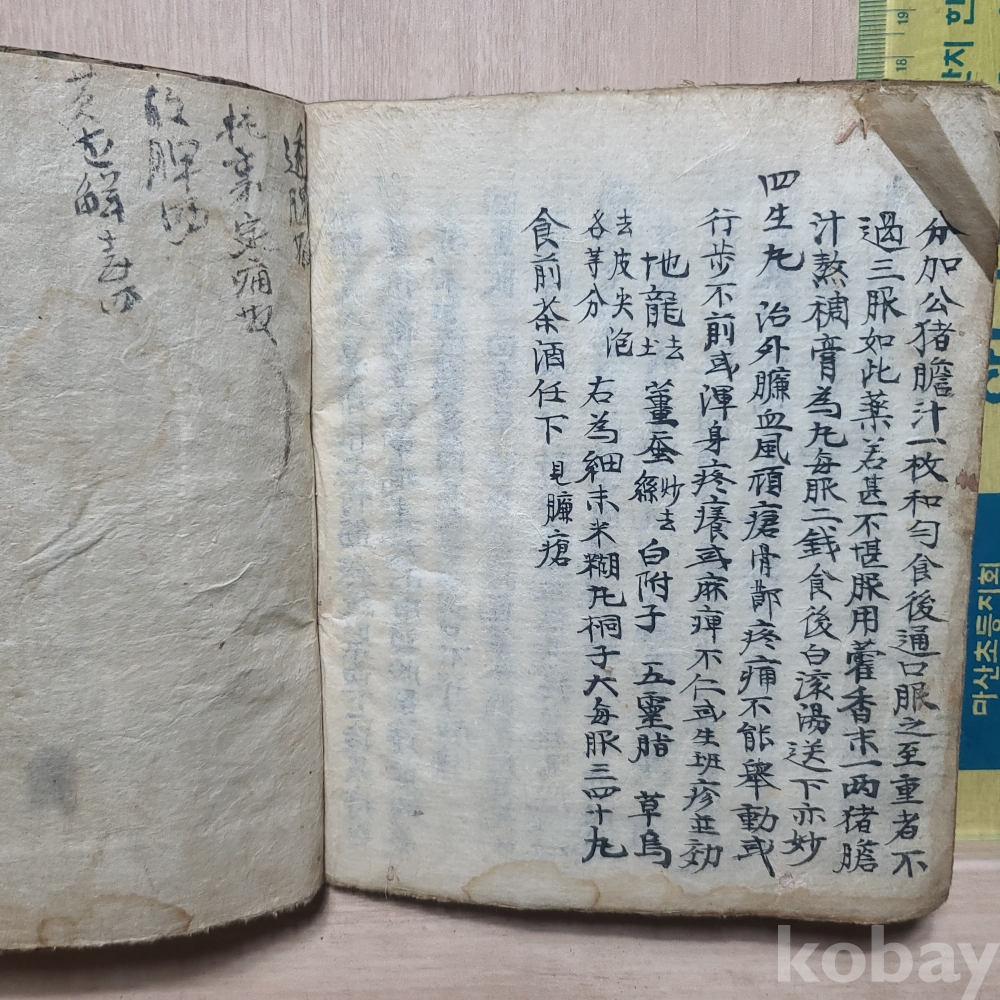 分加公猪膽汁一枚和勻食後通口服之至重者不
過三服如此藥若甚不堪服用藿香末一両猪膽
汁熬稠膏為丸每服二錢食後白滾湯送下亦妙
四生丸 治外臁血風頑瘡骨節疼痛不能舉動或
行步不前或渾身疼癢或麻痺不仁或生班疹並効
地龍去土 薑蚕炒去絲 白附子 五靈脂 草烏
去皮尖泡 各等分 右為細末米糊丸桐子大每服三四十丸
食前茶酒任下 見臁瘡
定痛散
마산초등지회
18
19
kobay